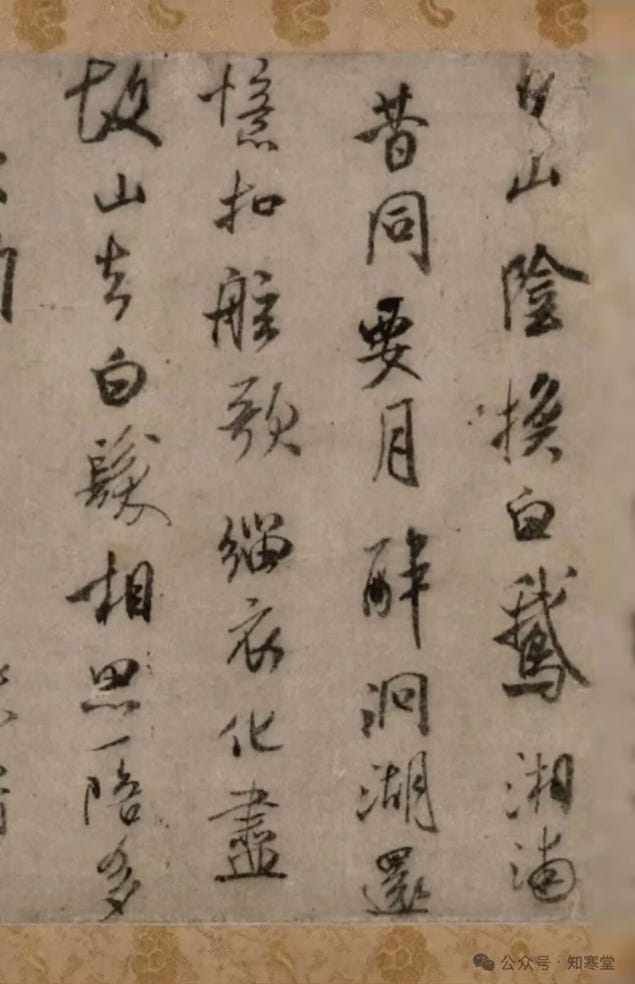 山陰換白鵝湘浦
昔同要月醉洞湖還
憶扣舷歌緇衣化盡
故山去白髮相思一陪多
公众号·知寒堂